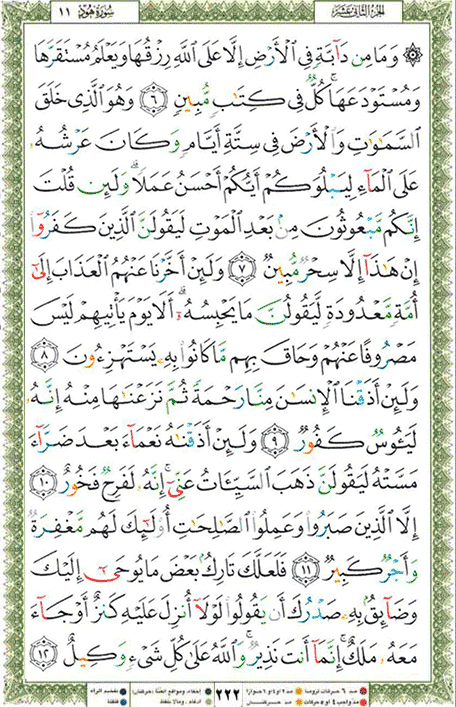 سُورَةُ هُودٍ ١١ الجزء الثاني عشر
۞ وَمَا مِن دَآبَّةٍ فِى ٱلْأَرْضِ إِلَّا عَلَى ٱللَّهِ رِزْقُهَا وَيَعْلَمُ مُسْتَقَرَّهَا
وَمُسْتَوْدَعَهَا ۚ كُلٌّ فِى كِتَٰبٍ مُّبِينٍ ٦ وَهُوَ ٱلَّذِى خَلَقَ
ٱلسَّمَٰوَٰتِ وَٱلْأَرْضَ فِى سِتَّةِ أَيَّامٍ وَكَانَ عَرْشُهُۥ
عَلَى ٱلْمَآءِ لِيَبْلُوَكُمْ أَيُّكُمْ أَحْسَنُ عَمَلًا ۗ وَلَئِن قُلْتَ
إِنَّكُم مَّبْعُوثُونَ مِنۢ بَعْدِ ٱلْمَوْتِ لَيَقُولَنَّ ٱلَّذِينَ كَفَرُوٓا۟
إِنْ هَٰذَآ إِلَّا سِحْرٌ مُّبِينٌ ٧ وَلَئِنْ أَخَّرْنَا عَنْهُمُ ٱلْعَذَابَ إِلَىٰٓ
أُمَّةٍ مَّعْدُودَةٍ لَّيَقُولُنَّ مَا يَحْبِسُهُۥٓ ۗ أَلَا يَوْمَ يَأْتِيهِمْ لَيْسَ
مَصْرُوفًا عَنْهُمْ وَحَاقَ بِهِم مَّا كَانُوا۟ بِهِۦ يَسْتَهْزِءُونَ ٨
وَلَئِنْ أَذَقْنَا ٱلْإِنسَٰنَ مِنَّا رَحْمَةً ثُمَّ نَزَعْنَٰهَا مِنْهُ إِنَّهُۥ
لَيَـُٔوسٌ كَفُورٌ ٩ وَلَئِنْ أَذَقْنَٰهُ نَعْمَآءَ بَعْدَ ضَرَّآءَ
مَسَّتْهُ لَيَقُولَنَّ ذَهَبَ ٱلسَّيِّـَٔاتُ عَنِّىٓ ۚ إِنَّهُۥ لَفَرِحٌ فَخُورٌ ١٠
إِلَّا ٱلَّذِينَ صَبَرُوا۟ وَعَمِلُوا۟ ٱلصَّٰلِحَٰتِ أُو۟لَٰٓئِكَ لَهُم مَّغْفِرَةٌ
وَأَجْرٌ كَبِيرٌ ١١ فَلَعَلَّكَ تَارِكٌۢ بَعْضَ مَا يُوحَىٰٓ إِلَيْكَ
وَضَآئِقٌۢ بِهِۦ صَدْرُكَ أَن يَقُولُوا۟ لَوْلَآ أُنزِلَ عَلَيْهِ كَنزٌ أَوْ جَآءَ
مَعَهُۥ مَلَكٌ ۚ إِنَّمَآ أَنتَ نَذِيرٌ ۚ وَٱللَّهُ عَلَىٰ كُلِّ شَىْءٍ وَكِيلٌ ١٢
٢٢٢